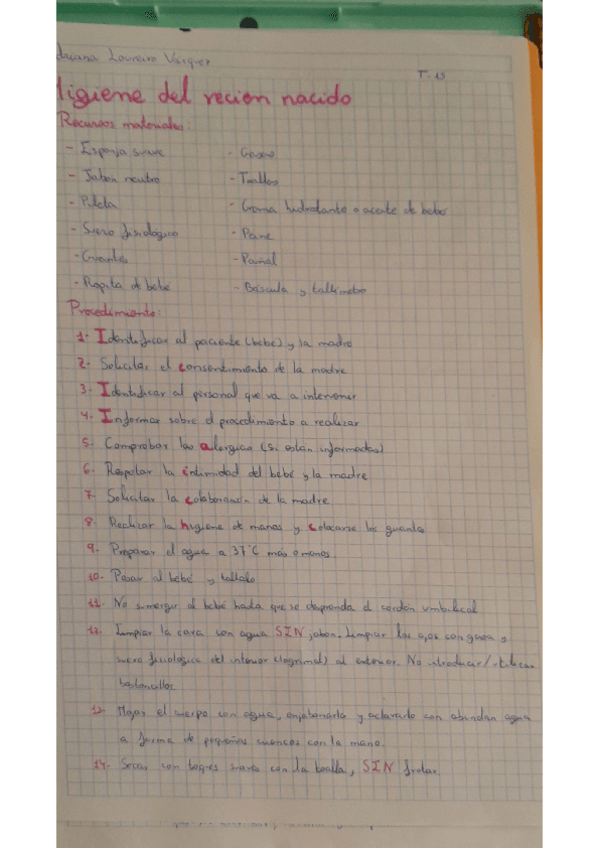 Loureiro Vázquez
T-15
Higiene del recien nacido
Recursos materiales:
- Esponja suave - Gasas
- Jabón neutro - Toallas
- Pileta - Crema hidratante o aceite de bebé
- Suero fisiologico - Peine
- Guantes - Pañal
- Ropita de bebé - Báscula y tallimetro
Procedimiento:
1- Identificar al paciente (bebé) y la madre
2- Solicitar el consentimiento de la madre
3- Identificar al personal que va a intervenir
4- Informar sobre el procedimiento a realizar
5- Comprobar las alergias (si están informadas)
6- Respetar la intimidad del bebé y la madre
7- Solicitar la colaboración de la madre
8- Realizar la higiene de manos y colocarse los guantes
9- Preparar el agua a 37°C más o menos
10- Pesar al bebé y tallarlo
11- No sumergir al bebé hasta que se desprenda el cordón umbilical
12- Limpiar la cara con agua SIN jabon. Limpiar los ojos con gasa y
suero fisiológico del interior (lagrimal) al exterior. No introducir/utilizar
bastoncillos
13- Mojar el cuerpo con agua, enjabonarla y aclararlo con abundan agua
a forma de pequeños cuencos con la mano.
14- Secar con toques suaves con la toalla, SIN frotar.